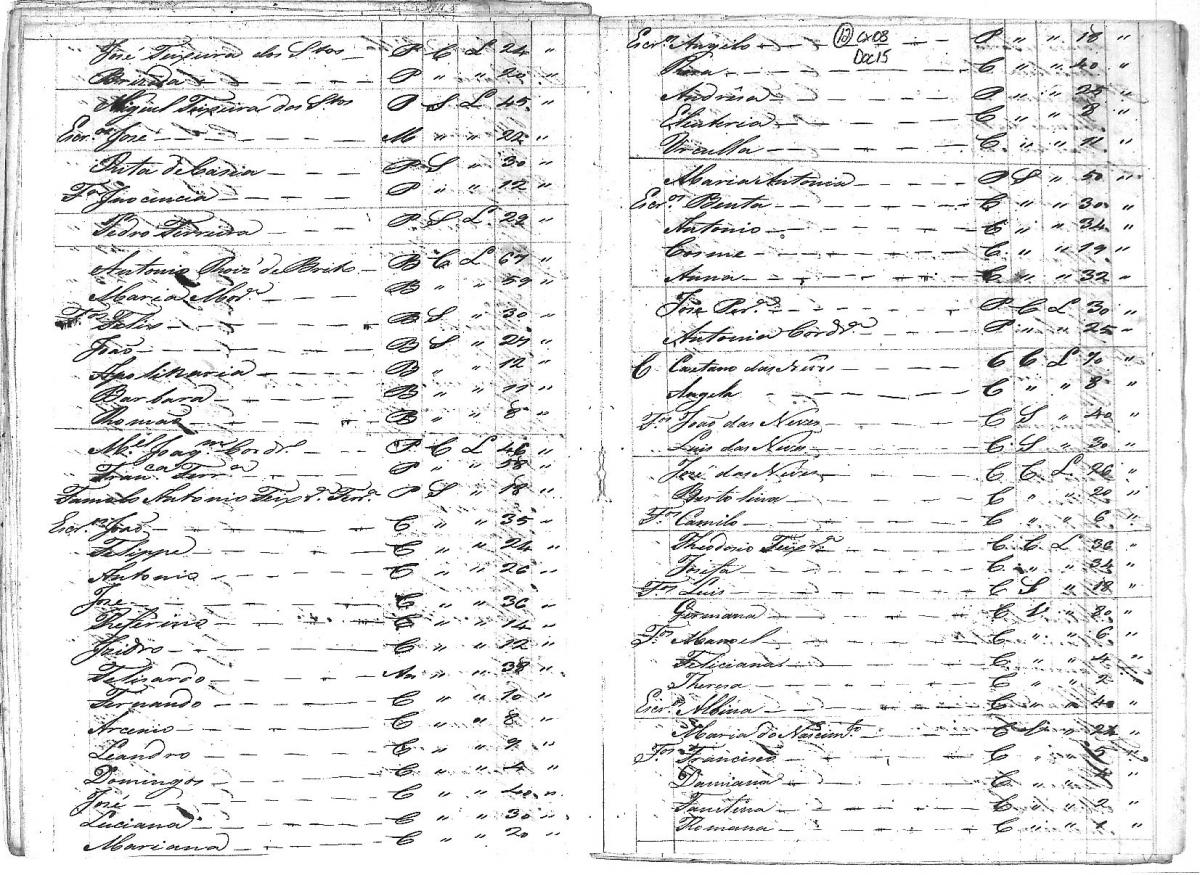 José Teixeira dos Stos P C L 24 "
Brizida P " " 20 "
Miguel Teixeira dos Stos P S L 45 "
Escr.os José M " " 22 "
Rita de Cassia P S " 30 "
F.a Innocencia P " " 12 "
Pedro Ferreira P S L 22 "
Antonio Roiz' de Brito B C L 67 "
Maria Mor.a B " " 59 "
F.os Felis B S " 30 "
João B S " 27 "
Apolinaria B " " 12 "
Barbara B " " 11 "
Thomas B " " 8 "
M.el Joaq.m Cord.o P C L 46 "
Fran.ca Ferr.a P " " 58 "
Antonio Teix.ra Ferr.a P S " 18 "
Escr.os João C " " 35 "
Felippe C " " 24 "
Antonio C " " 26 "
José C " " 36 "
Seferino C " " 14 "
Izidro C " " 12 "
Felisardo An " " 38 "
Fernando C " " 10 "
Arcenio C " " 8 "
Leandro C " " 9 "
Domingos C " " 4 "
José C " " 40 "
Luciana C " " 30 "
Mariana C " " 20 "
12 Cx08
Doc15
Escr.os Angelo P " " 18 "
Roza C " " 40 "
Andrêsa P " " 25 "
C " " 8 "
C " " 11 "
Maria Antonia P S " 50 "
Escr.os Benta C " " 30 "
Antonio C " " 34 "
Cosme C " " 19 "
Anna C " " 32 "
José Per.a P C L 30 "
Antonia Cord.ra P " " 25 "
C Caetano das Neves C C L 70 "
Angela C " " 8 "
F.os João das Neves C S " 40 "
Luis das Neves C S " 30 "
José das Neves C C L 26 "
Bertolina C " " 20 "
F.o Camilo C " " 6 "
Theodorio Teix.ra C C L 36 "
Josefa C " " 34 "
F.os Luis C S " 18 "
Germana C S " 20 "
F.os Manoel C " " 6 "
Feliciana C " " 4 "
Theresa C " " 2 "
Escr.a Albina C " " 40 "
Maria do Nascim.to C S " 27 "
F.os Francisco C " " 5 "
Damiana C " "
Faustina C " " 2 "
Romana C " " 1 "